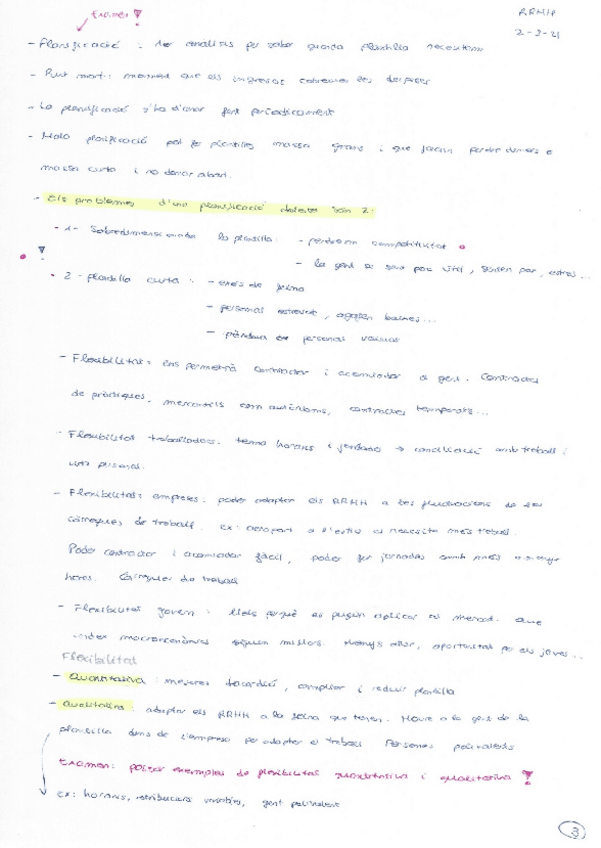 Examen !
RRHH
2-3-21
- Planificació : fer anàlisis per saber quanta plantilla necessitem
- Punt mort : moment que els ingressos cobreixen les despeses
- La planificació s'ha d'anar fent periòdicament
- Mala planificació pot fer plantilles massa grans i que facin perdre diners o
massa curta i no donar abast.
- Els problemes d'una planificació dolenta són 2:
- 1- Sobredimensionada la plantilla : - perdrem competitivitat
- la gent se sent poc útil, senten por, estrés...
! 2 - plantilla curta : - excés de feina
- personal estressat, agafen baixes...
- pèrdua de personal valuós
- Flexibilitat : ens permetrà contractar i acomiadar a gent. Contractes
de pràctiques, mercantils com autònoms, contractes temporals...
- Flexibilitat treballadors : tema horaris i jornada → conciliació amb treball i
vida personal.
- Flexibilitat empreses : poder adaptar els RRHH a les fluctuacions de les
càrregues de treball. ex: aeroport a l'estiu es necessita més treball.
Poder contractar i acomiadar fàcil, poder fer jornades amb més o menys
hores. Càrregues de treball
- Flexibilitat govern : lleis perquè es puguin aplicar al mercat. Que
index macroeconòmics siguin millors. Menys atur, oportunitat per els joves...
Flexibilitat
- Quantitativa : mesures d'actuació, ampliar i reduir plantilla
- Qualitativa : adaptar els RRHH a la feina que tenen. Moure a la gent de la
plantilla dins de l'empresa per adaptar el treball. Persones polivalents
Examen: posar exemples de flexibilitat quantitativa i qualitativa !
ex: horaris, retribucions variables, gent polivalent
3